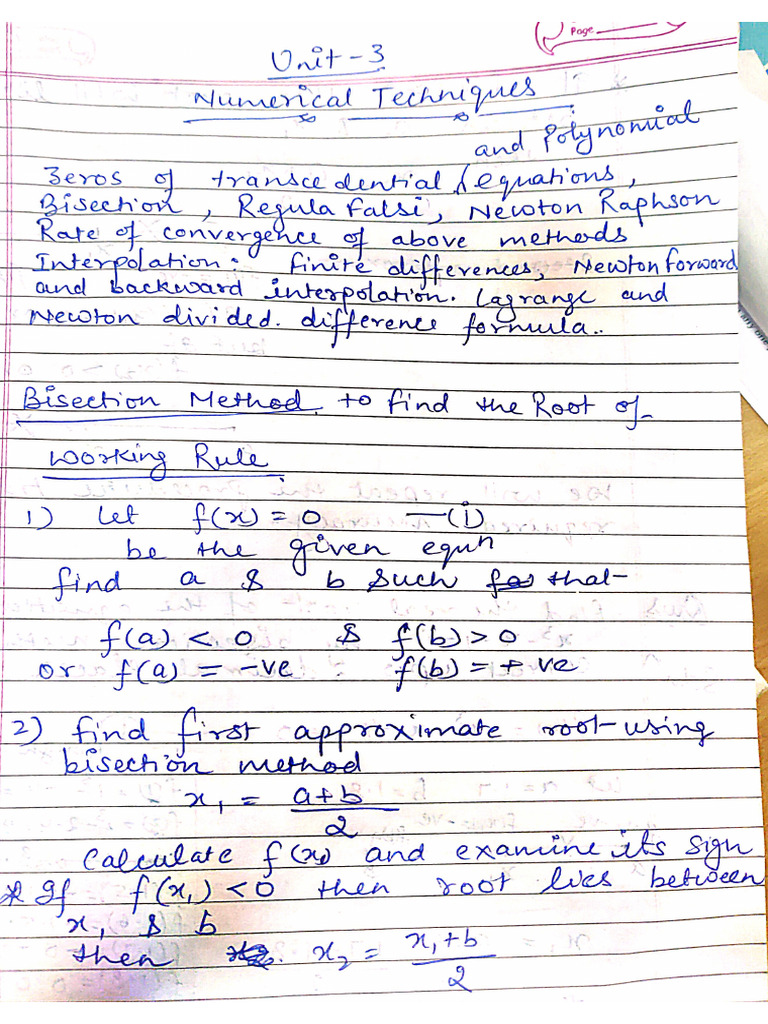 Page
Unit-3
Numerical Techniques
and Polynomial
Zeros of transcedential equations,
Bisection, Regula Falsi, Newton Raphson
Rate of convergence of above methods
Interpolation: finite differences, Newton forward
and backward interpolation. Lagrange and
Newton divided. difference formula..
Bisection Method to find the Root of
Working Rule
1) Let f(x) = 0 —(i)
be the given equn
find a & b such that
f(a) < 0 & f(b) > 0
or f(a) = -ve f(b) = + ve
2) find first approximate root using
bisection method
x₁ = a+b/2
Calculate f(x) and examine its sign
* If f(x₁) < 0 then root lies between
x₁ & b
then x₂ = x₁+b/2